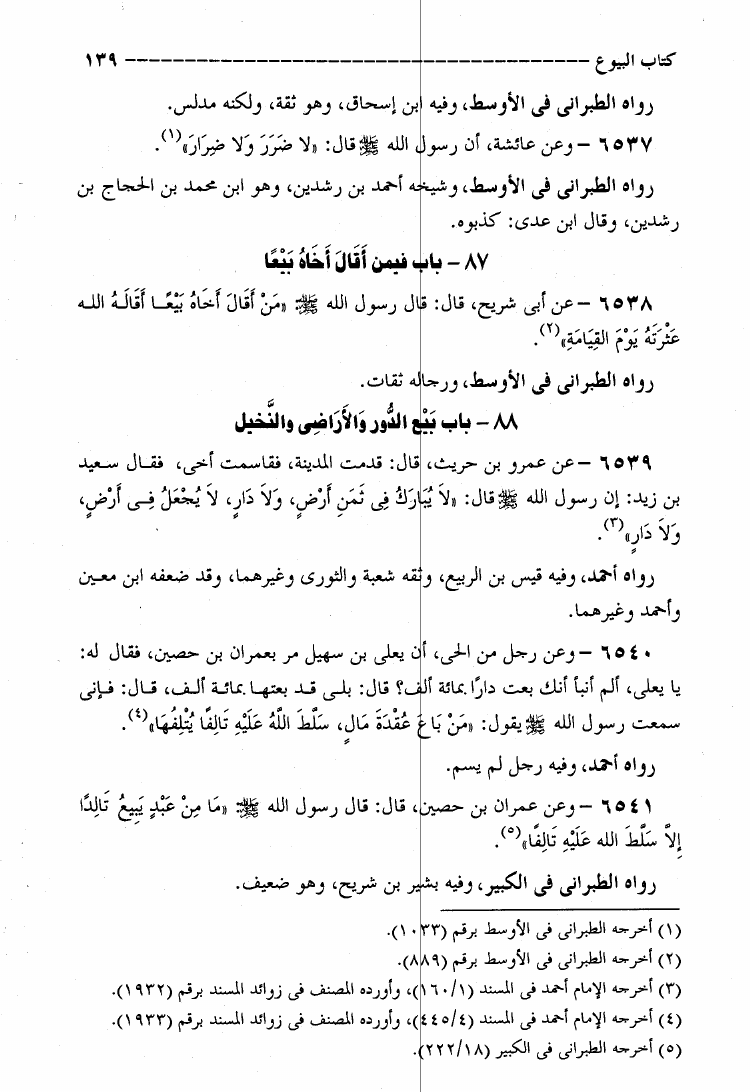 كتاب البيوع ــــــــــــــــــــــــــــــــــــــــ ١٣٩
رواه الطبرانى فى الأوسط، وفيه ابن إسحاق، وهو ثقة، ولكنه مدلس.
٦٥٣٧ – وعن عائشة، أن رسول الله ﷺ قال: «لا ضَرَرَ وَلا ضِرَارَ»(١).
رواه الطبرانى فى الأوسط، وشيخه أحمد بن رشدين، وهو ابن محمد بن الحجاج بن
رشدين، وقال ابن عدى: كذبوه.
٨٧ – باب فيمن أَقَالَ أَخَاهُ بَيْعًا
٦٥٣٨ – عن أبى شريح، قال: قال رسول الله ﷺ: «مَنْ أَقَالَ أَخَاهُ بَيْعًا أَقَالَهُ الله
عَثْرَتَهُ يَوْمَ القِيَامَةِ»(٢).
رواه الطبرانى فى الأوسط، ورجاله ثقات.
٨٨ – باب بَيْع الدُّور وَالأَرَاضِى والنَّخيل
٦٥٣٩ – عن عمرو بن حريث، قال: قدمت المدينة، فقاسمت أخى، فقال سعيد
بن زيد: إن رسول الله ﷺ قال: «لاَ يُبَارَكُ فِى ثَمَنِ أَرْضٍ، وَلاَ دَارٍ، لاَ يُجْعَلُ فِى أَرْضٍ،
وَلاَ دَارٍ»(٣).
رواه أحمد، وفيه قيس بن الربيع، وثقه شعبة والثورى وغيرهما، وقد ضعفه ابن معين
وأحمد وغيرهما.
٦٥٤٠ – وعن رجل من الحى، أن يعلى بن سهيل مر بعمران بن حصين، فقال له:
يا يعلى، ألم أنبأ أنك بعت دارًا بمائة ألف؟ قال: بلى قد بعتها بمائة ألف، قال: فإنى
سمعت رسول الله ﷺ يقول: «مَنْ بَاعَ عُقْدَةَ مَالٍ، سَلَّطَ اللَّهُ عَلَيْهِ تَالِفًا يُتْلِفُهَا»(٤).
رواه أحمد، وفيه رجل لم يسم.
٦٥٤١ – وعن عمران بن حصين، قال: قال رسول الله ﷺ: «مَا مِنْ عَبْدٍ يَبِيعُ تَالِدًا
إِلاَّ سَلَّطَ الله عَلَيْهِ تَالِفًا»(٥).
رواه الطبرانى فى الكبير، وفيه بشير بن شريح، وهو ضعيف.
(١) أخرجه الطبرانى فى الأوسط برقم (١٠٣٣).
(٢) أخرجه الطبرانى فى الأوسط برقم (٨٨٩).
(٣) أخرجه الإمام أحمد فى المسند (١٦٠/١)، وأورده المصنف فى زوائد المسند برقم (١٩٣٢).
(٤) أخرجه الإمام أحمد فى المسند (٤٤٥/٤)، وأورده المصنف فى زوائد المسند برقم (١٩٣٣).
(٥) أخرجه الطبرانى فى الكبير (٢٢٢/١٨).